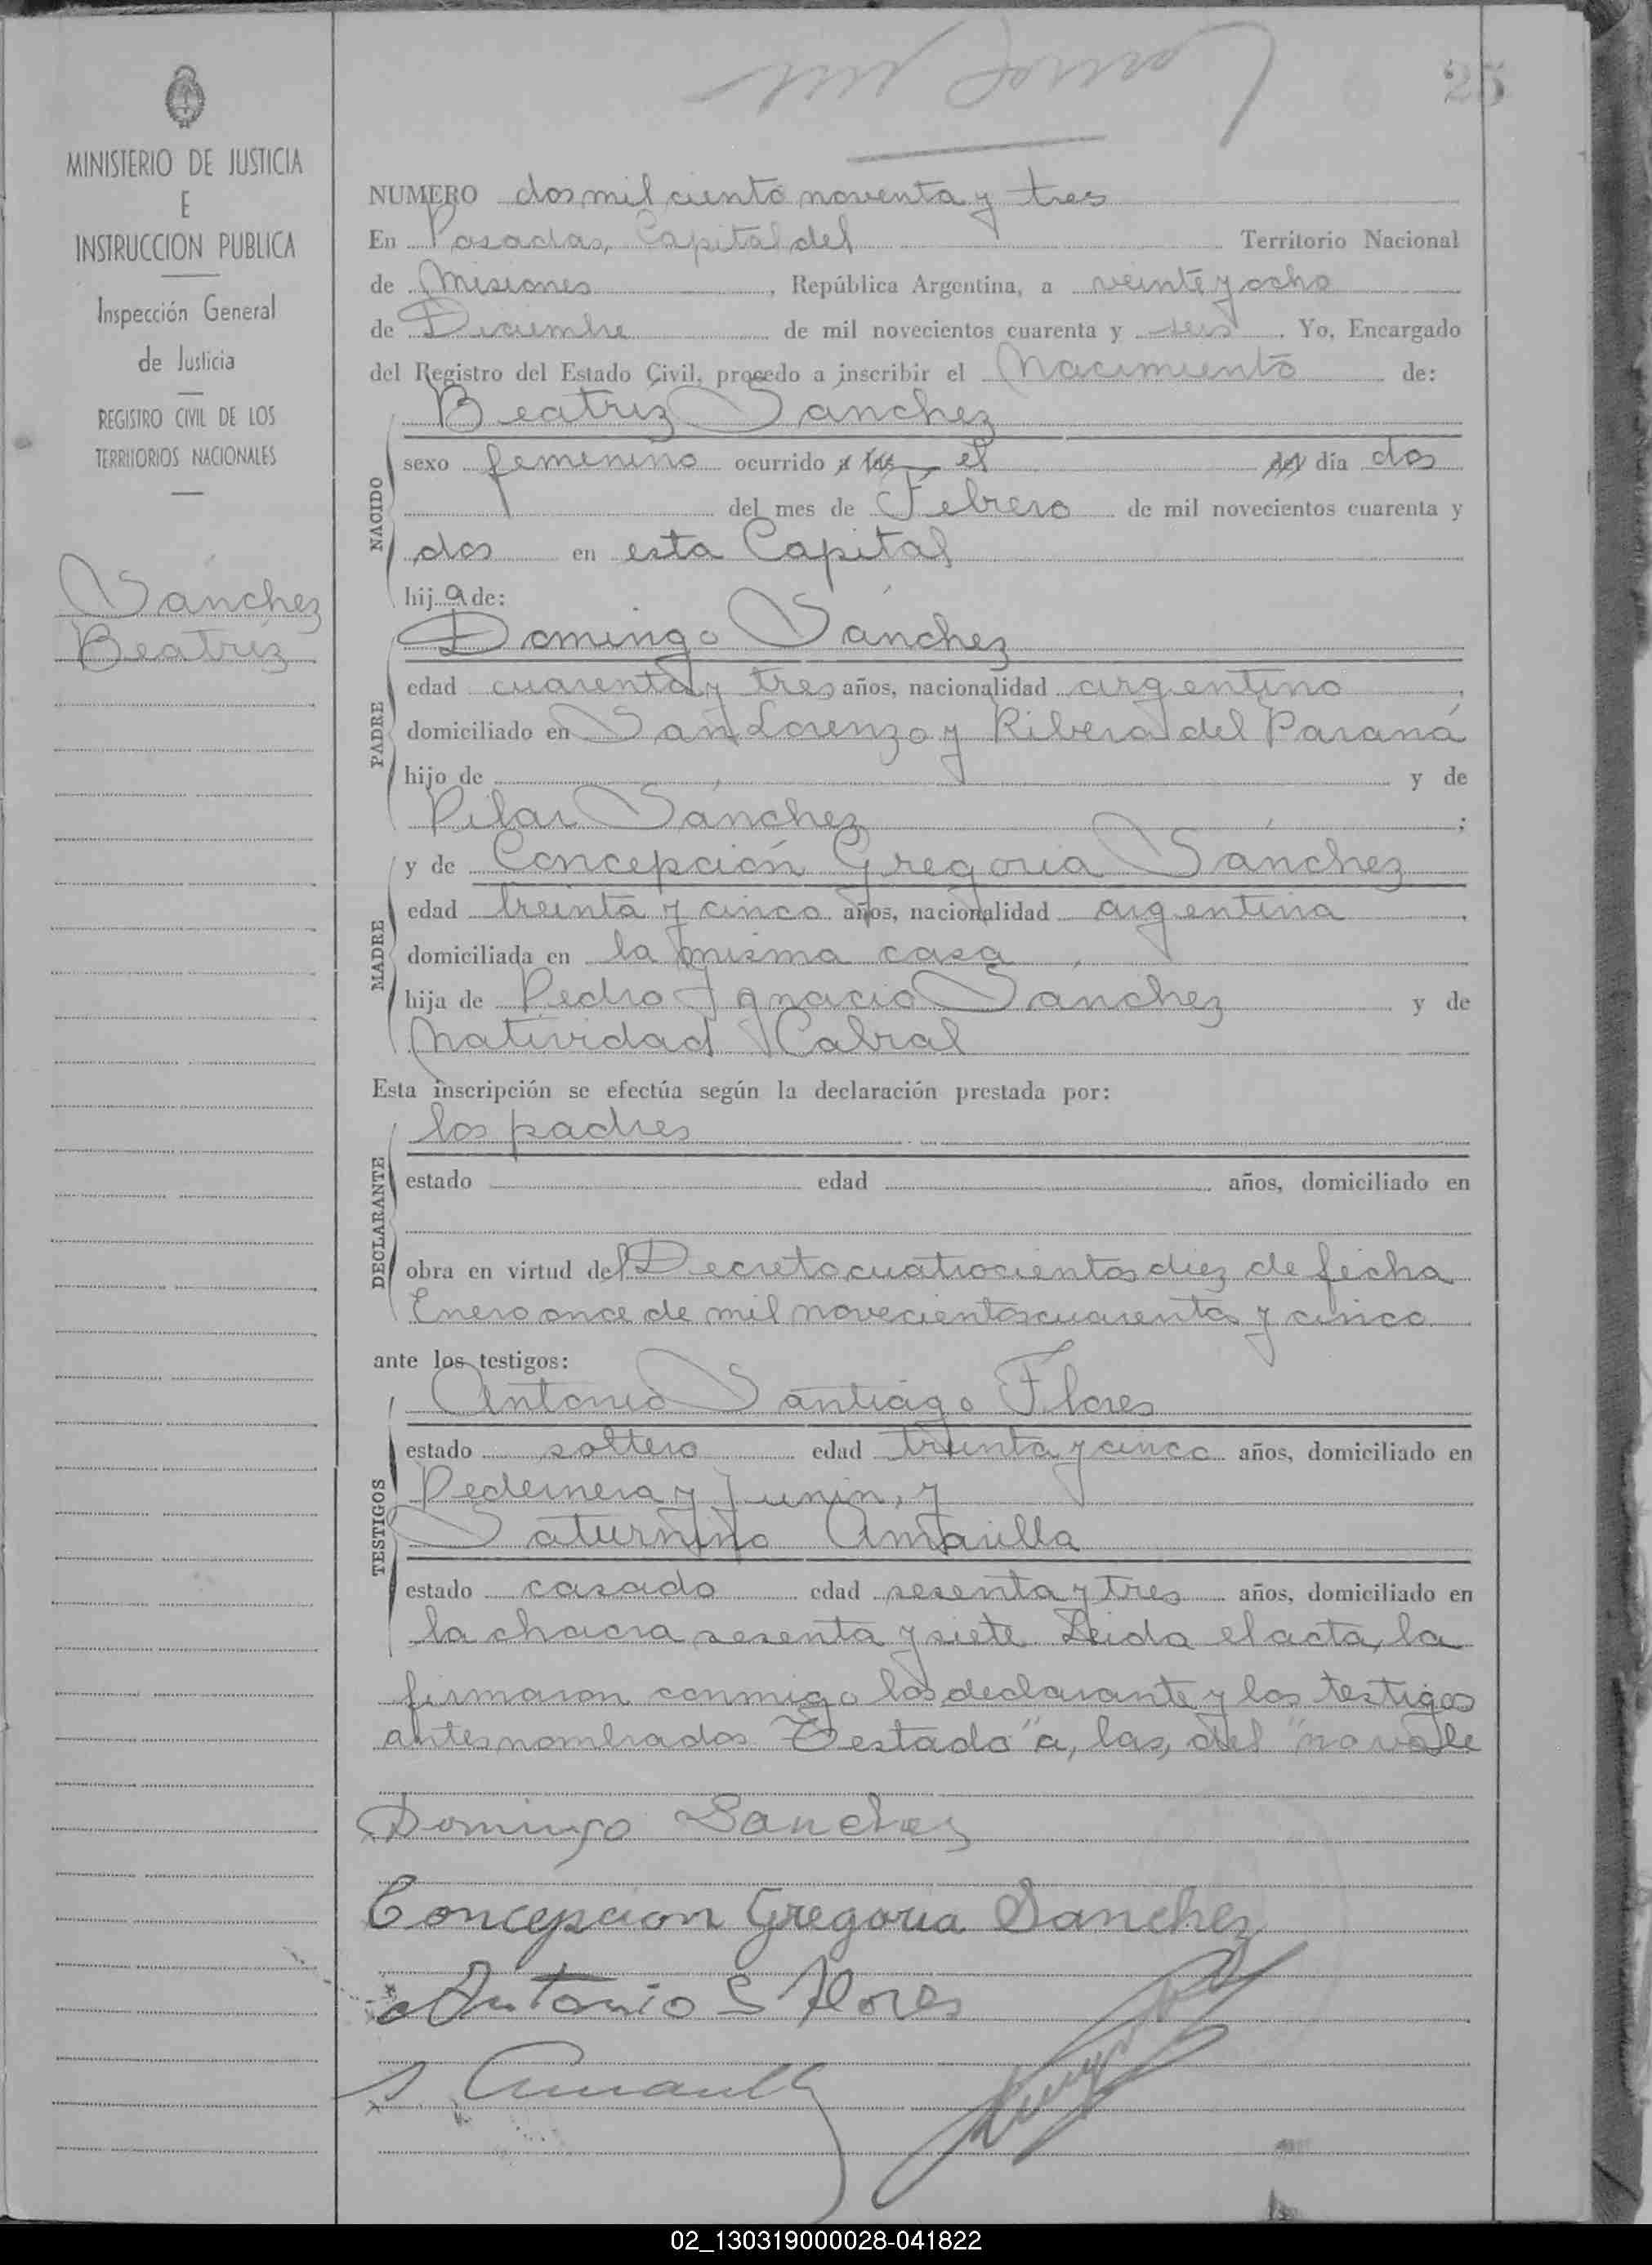 25
MINISTERIO DE JUSTICIA
E
INSTRUCCION PUBLICA
Inspección General
de Justicia
REGISTRO CIVIL DE LOS
TERRITORIOS NACIONALES
Sánchez
Beatriz
NUMERO dos mil ciento noventa y tres
En Posadas, Capital del Territorio Nacional
de Misiones, República Argentina, a veinte y ocho
de Diciembre de mil novecientos cuarenta y seis. Yo, Encargado
del Registro del Estado Civil, procedo a inscribir el Nacimiento de:
NACIDO
Beatriz Sánchez
sexo femenino ocurrido a las el del día dos
del mes de Febrero de mil novecientos cuarenta y
dos en esta Capital
hija de:
PADRE
Domingo Sánchez
edad cuarenta y tres años, nacionalidad argentino,
domiciliado en San Lorenzo y Ribera del Paraná
hijo de y de
Pilar Sánchez;
MADRE
y de Concepción Gregoria Sánchez
edad treinta y cinco años, nacionalidad argentina,
domiciliada en la misma casa,
hija de Pedro Ignacio Sánchez y de
Natividad Cabral
Esta inscripción se efectúa según la declaración prestada por:
DECLARANTE
los padres
estado edad años, domiciliado en
obra en virtud del Decreto cuatrocientos diez de fecha
Enero once de mil novecientos cuarenta y cinco
ante los testigos:
TESTIGOS
Antonio Santiago Flores
estado soltero edad treinta y cinco años, domiciliado en
Pedernera y Junin, y
Saturnino Amarilla
estado casado edad sesenta y tres años, domiciliado en
la chacra sesenta y siete Leida el acta, la
firmaron conmigo los declarante y los testigos
antes nombrados Testado "a, las, del" no vale
Domingo Sanchez
Concepcion Gregoria Sanchez
Antonio S Flores
S Amarilla
02_130319000028-041822